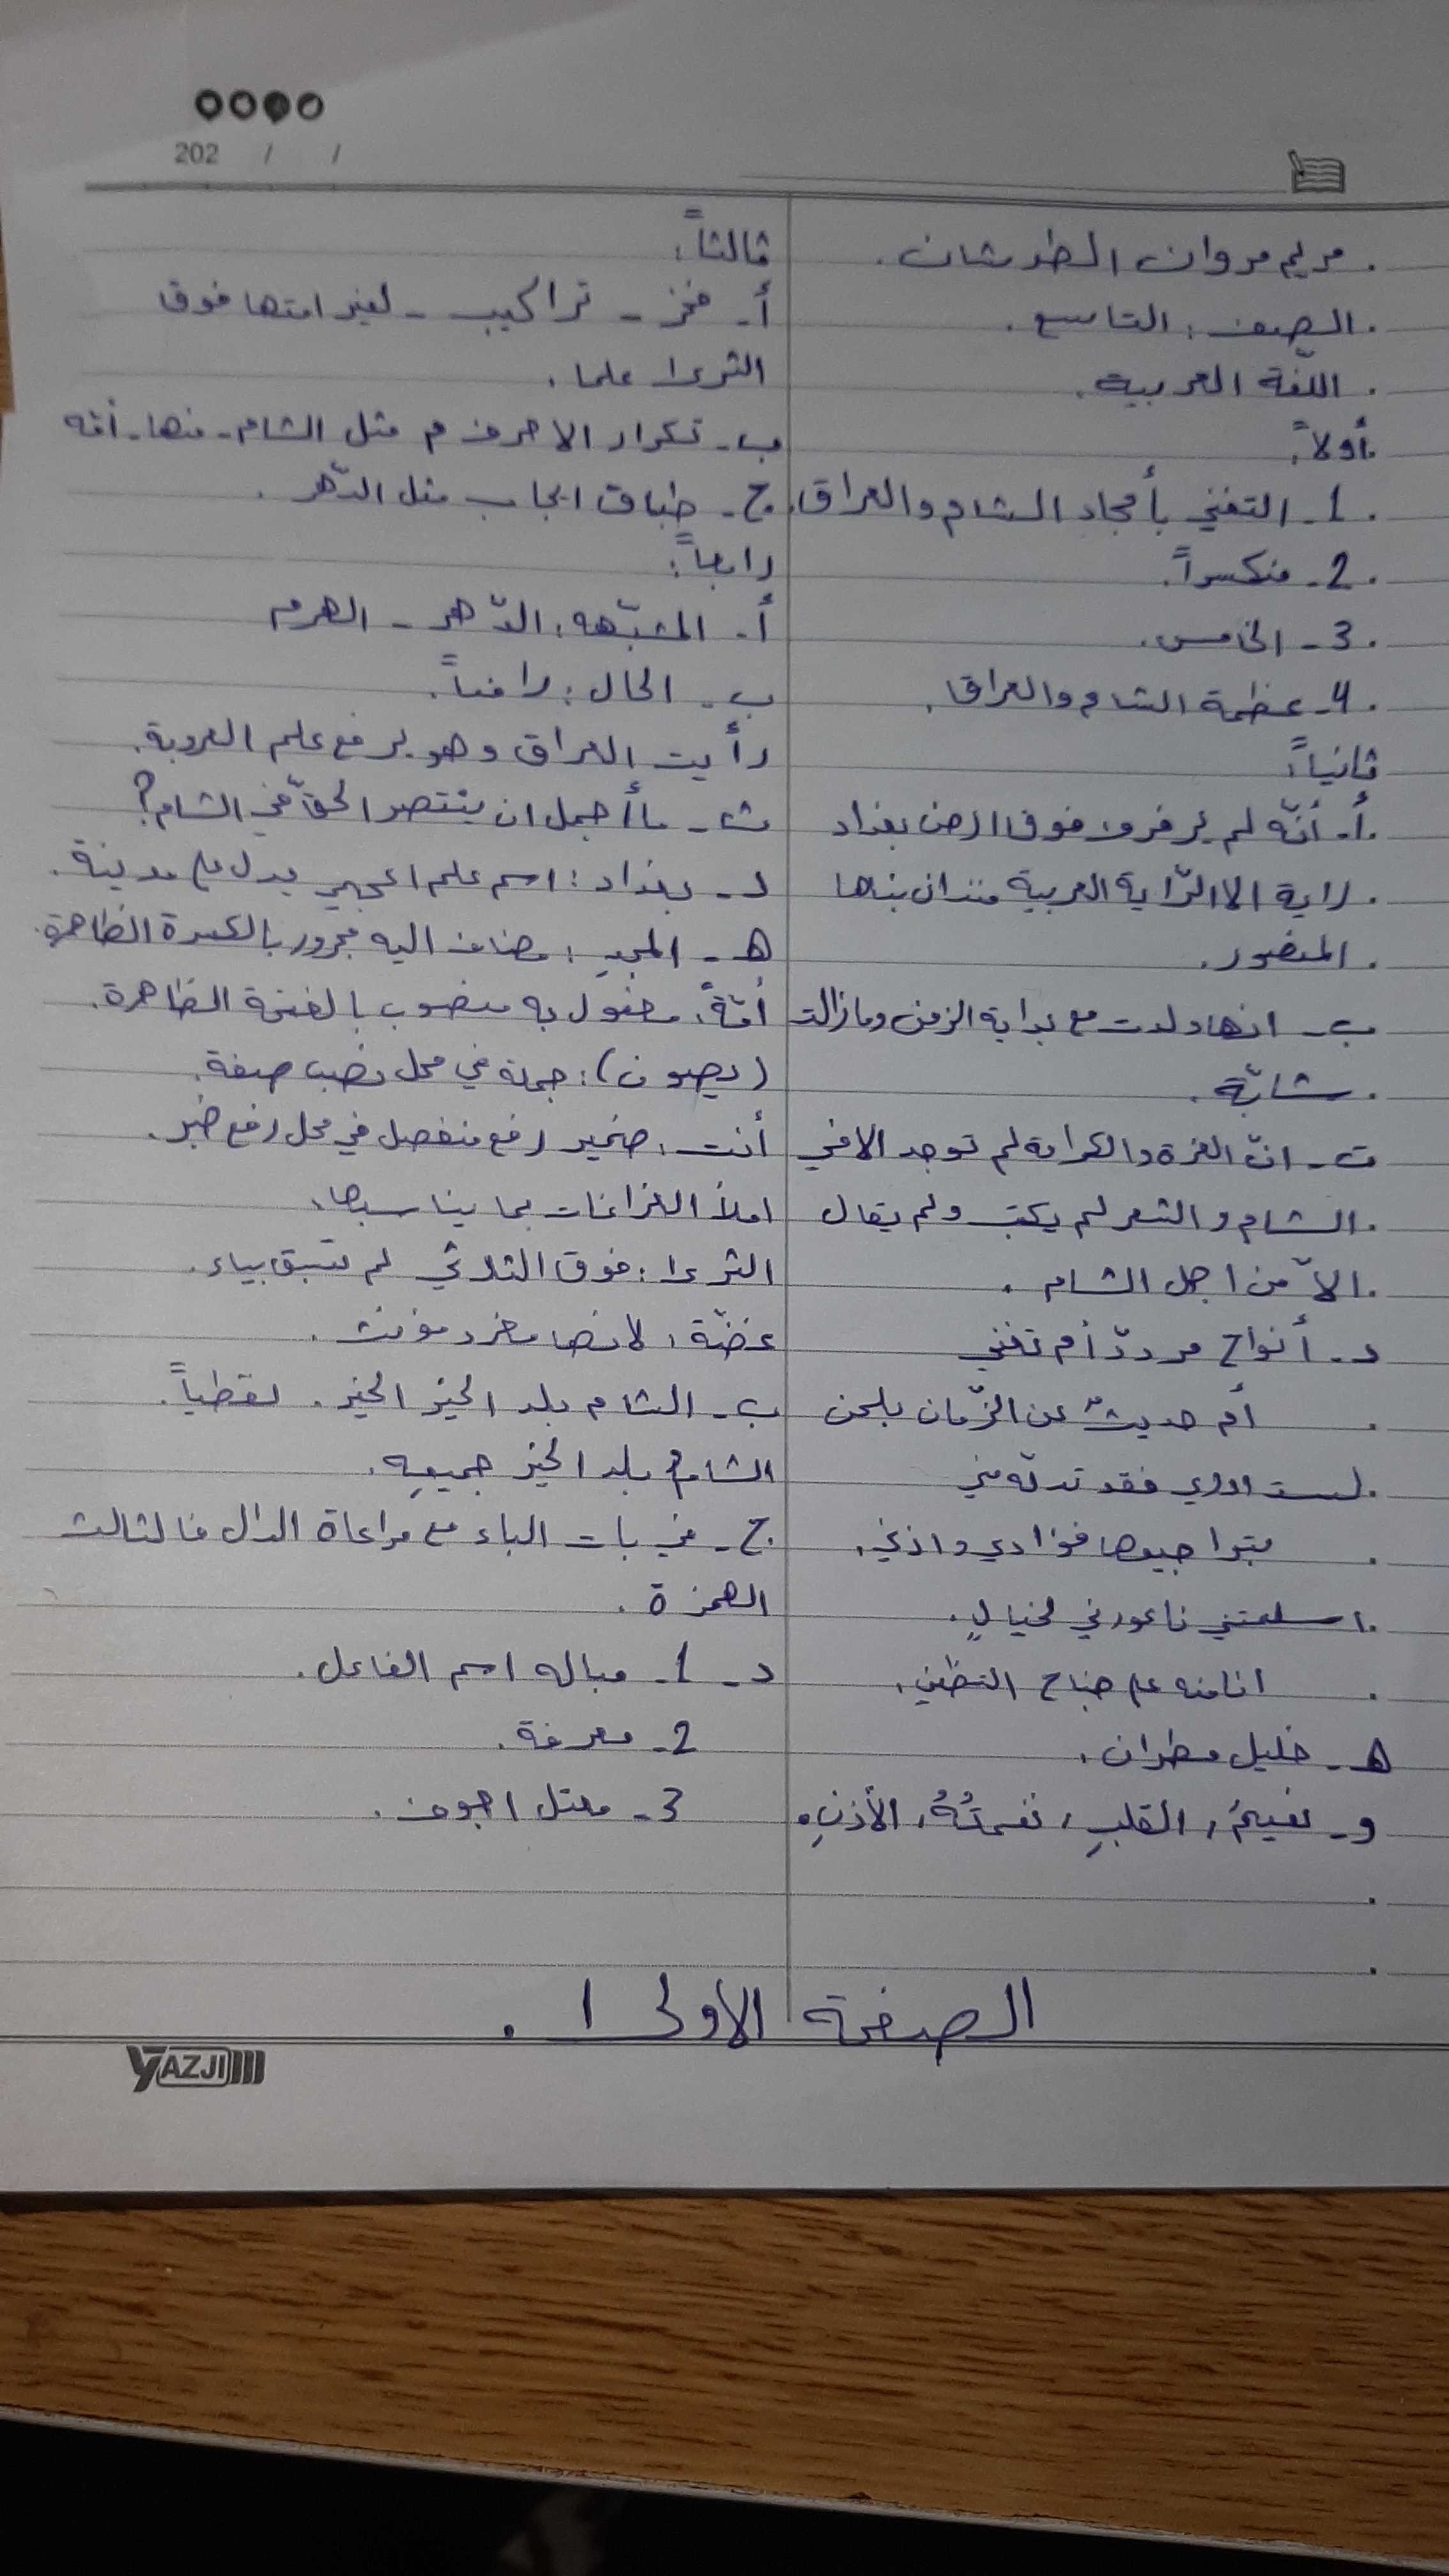 202 / /
مريم مروان الطرشان.
الصف: التاسع.
اللّغة العربية.
أولاً:
1- التغني بأمجاد الشام والعراق.
2- منكسراً.
3- الخامس.
4- عظمة الشام والعراق.
ثانياً:
أ- أنّه لم يرفرف فوق ارض بغداد
راية الا الرّاية العربية منذ ان بناها
المنصور.
ب- انها ولدت مع بداية الزمن ومازالت
شابّة.
ت- انّ العزة والكرامة لم توجد الا في
الشام والشعر لم يكتب ولم يقال
الاّ من اجل الشام.
د- أنواح مردد أم تغني
أم حديثٌ عن الزّمان بلحن
لست ادري فقد تدلّه مني
بتواجيعها فؤادي واذني.
اسلمتني ناعورتي لخيالٍ.
انا منه على جناح التظني.
هـ- خليل مطران.
و- نعيمُ، القلبِ، نغمتُهُ، الأذنِ.
ثالثاً:
أ- فخر - تراكيب - لغير امتها فوق
الثريا علما.
ب- تكرار الاحرف م مثل الشام - منها - أمّه
ج- طباق ايجاب مثل الدّهر.
رابعاً:
أ- المشبّهه: الدّهر - الهرم
ب- الحال: رافعاً.
رأيت العراق وهو يرفع علم العروبة.
ت- ما أجمل ان ينتصر الحقّ في الشام؟
د- بغداد: اسم علم اعجمي يدل على مدينة.
هـ- المجدِ: مضاف اليه مجرور بالكسرة الظاهرة.
أمّةً: مفعول به منصوب بالفتحة الظاهرة.
(يصون): جملة في محل نصب صفة.
أنت: ضمير رفع منفصل في محل رفع خبر.
املأ الفراغات بما يناسبها.
الثرىا: فوق الثلاثي لم تسبق بياء.
غضّة: لانها مفرد مؤنث.
ب- الشام بلد الخير الخير. لفظياً.
الشام بلد الخير جميعهِ.
ج- في باب الباء مع مراعاة الدال فالثالث
الهمزة.
د- 1- مباله اسم الفاعل.
2- معرفة.
3- معتل اجوف.
الصفحة الاولى 1.
YAZJI